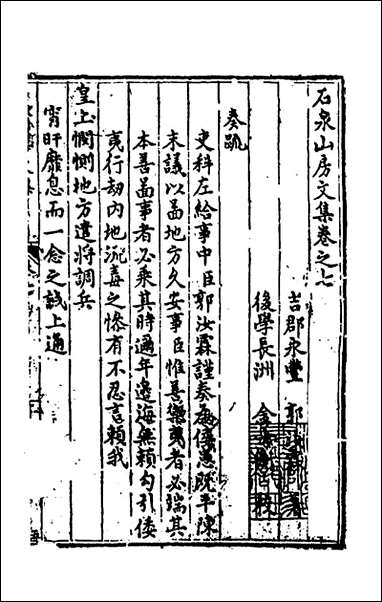 石泉山房文集卷之七
吉郡永豐 郭
後學長洲
奏疏
吏科左給事中臣郭汝霖謹奏為倭患既平陳
末議以啚地方久安事臣惟善禦夷者必瑞其
本善啚事者必乘其時邇年邊海無賴勾引倭
夷行刼内地流毒之慘有不忍言賴我
皇上憫惻地方遣將調兵
宵旰靡息而一念之誠上通